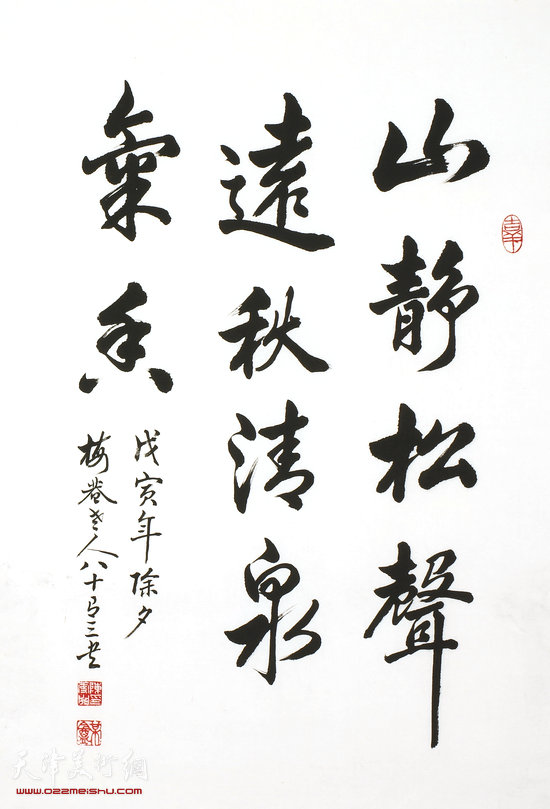 山静松聲
遠秋清泉
氣香
戊寅年除夕
梅盦老人八十有三書
天津美術網
www.022meishu.com